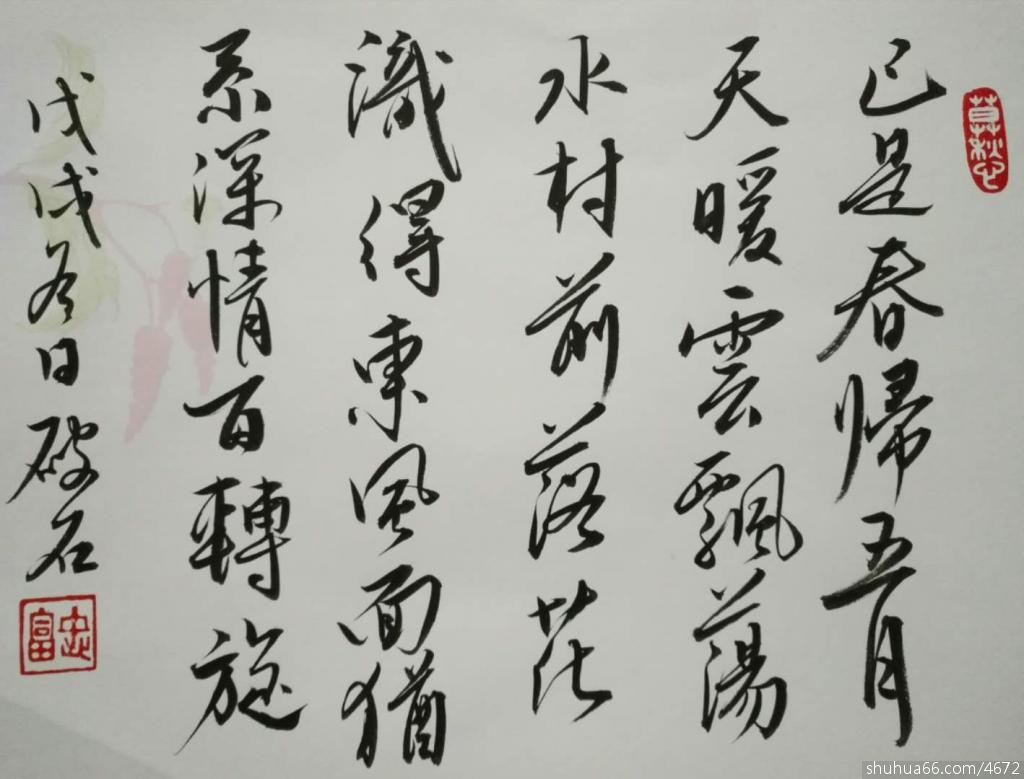 已是春歸五月
天暖雲飄蕩
水村前落花
識得東風面猶
系深情百轉旋
戊戌冬日破石
忠富
shuhua66.com/4672